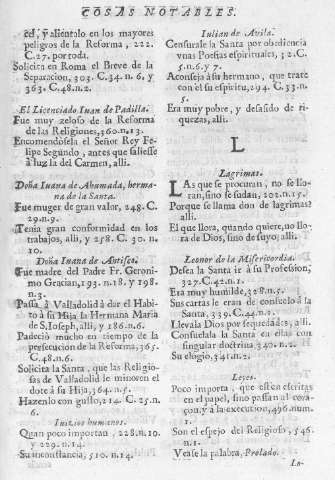 COSAS NOTABLES.
cel, y alientalo en los mayores
peligros de la Reforma, 222.
C.27. por toda.
Solicita en Roma el Breve de la
Separacion, 303. C.34. n.6. y
363. C.48. n.2.
El Licenciado Iuan de Padilla.
Fue muy zeloso de la Reforma
de las Religiones, 360. n.13.
Encomendòsela el Señor Rey Fe-
lipe Segundo, antes que saliesse
à luz la del Carmen, alli.
Doña Iuana de Ahumada, herma-
na de la Santa.
Fue muger de gran valor, 248. C.
29. n.9.
Tenia gran conformidad en los
trabajos, alli, y 258. C. 30. n.
10.
Doña Iuana de Antisco.
Fue madre del Padre Fr. Geroni-
mo Gracian, 193. n.18. y 198.
n.3.
Passa à Valladolid à dar el Habi-
to à su Hija la Hermana Maria
de S. Ioseph, alli, y 186. n.6.
Padeciò mucho en tiempo de la
persecucion de la Reforma, 365.
C.48. n.6.
Solicita la Santa, que las Religio-
sas de Valladolid le minoren el
dote à su Hija, 364. n.5.
Hazenlo con gusto, 214. C. 25. n.
6.
Inizios humanos.
Quan poco importan, 228. n.10.
y 229. n.14.
Su inconstancia, 510. n.14.
Iulian de Avila.
Censurale la Santa por obediencia
vnas Poesias espirituales, 32. C.
5. n.6. y 7.
Aconseja à su hermano, que trate
con èl su espiritu, 294. C. 33. n.
5.
Era muy pobre, y desasido de ri-
quezas, alli.
L
Lagrimas.
LAs que se procuran, no se llo-
ran, sino se sudan, 202. n.15.
Porque se llama don de lagrimas?
alli.
El que llora, quando quiere, no llo-
ra de Dios, sino de suyo, alli.
Leonor de la Misericordia.
Desea la Santa ir à su Profession,
327. C.42. n.1.
Era muy humilde, 328. n.5.
Sus cartas le eran de consuelo à la
Santa, 339. C.44. n.1.
Llevala Dios por sequedades, alli.
Consuelala la Santa en ellas con
singular doctrina, 340. n.2.
Su elogio, 341. n.2.
Leyes.
Poco importa, que estèn escritas
en el papel, sino passan al cora-
çon, y à la execucion, 496. num.
1.
Son el espejo del Religioso, 546.
n.1.
Vease la palabra, Prelado.